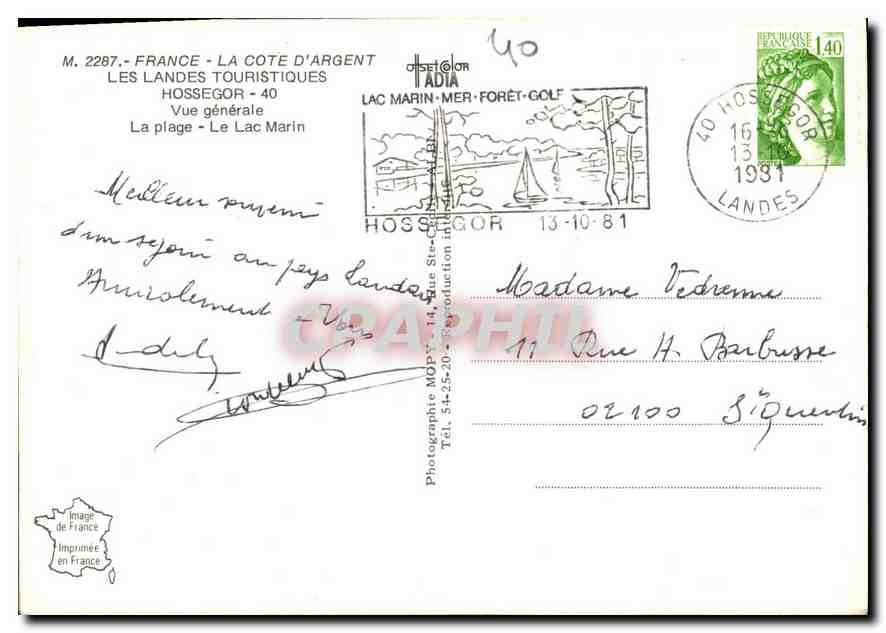 M. 2287.- FRANCE - LA COTE D'ARGENT
LES LANDES TOURISTIQUES
HOSSEGOR - 40
Vue générale
La plage - Le Lac Marin
40
OFFSETCOLOR
IADIA
REPUBLIQUE
FRANÇAISE 1,40
LAC MARIN·MER·FORÊT·GOLF
HOSSEGOR 13-10-81
40 HOSSEGOR
16
13-10
1981
LANDES
Meilleur souvenir
d'un séjour au pays landais
Amicalement à Vous
Madame Vedrenne
11 Rue H. Barbusse
02100 St Quentin
Photographie MOPY - 14, Rue Ste-Cécile - ALBI
Tél. 54-25-20 - Reproduction interdite
CPAPHIL
Image
de France
Imprimée
en France